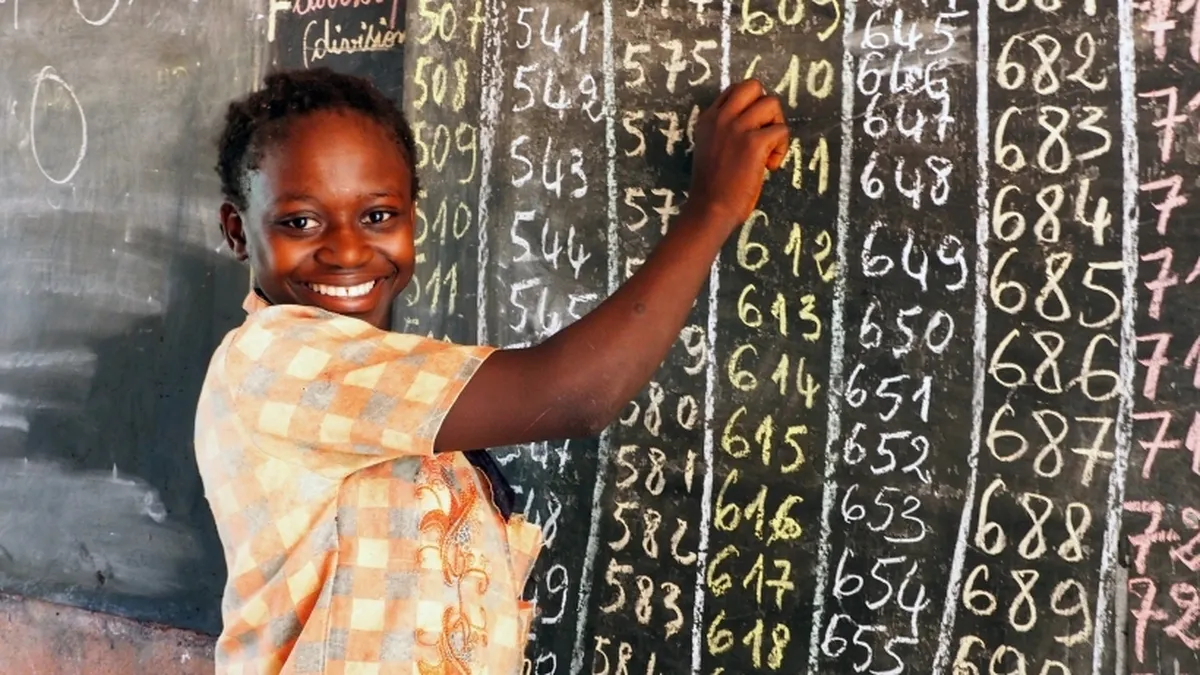 (division
507
508
509
510
511
541
542
543
544
545
575
580
581
582
583
609
610
11
612
613
614
615
616
617
618
645
646
647
648
649
650
651
652
653
654
655
682
683
684
685
686
687
688
689
690